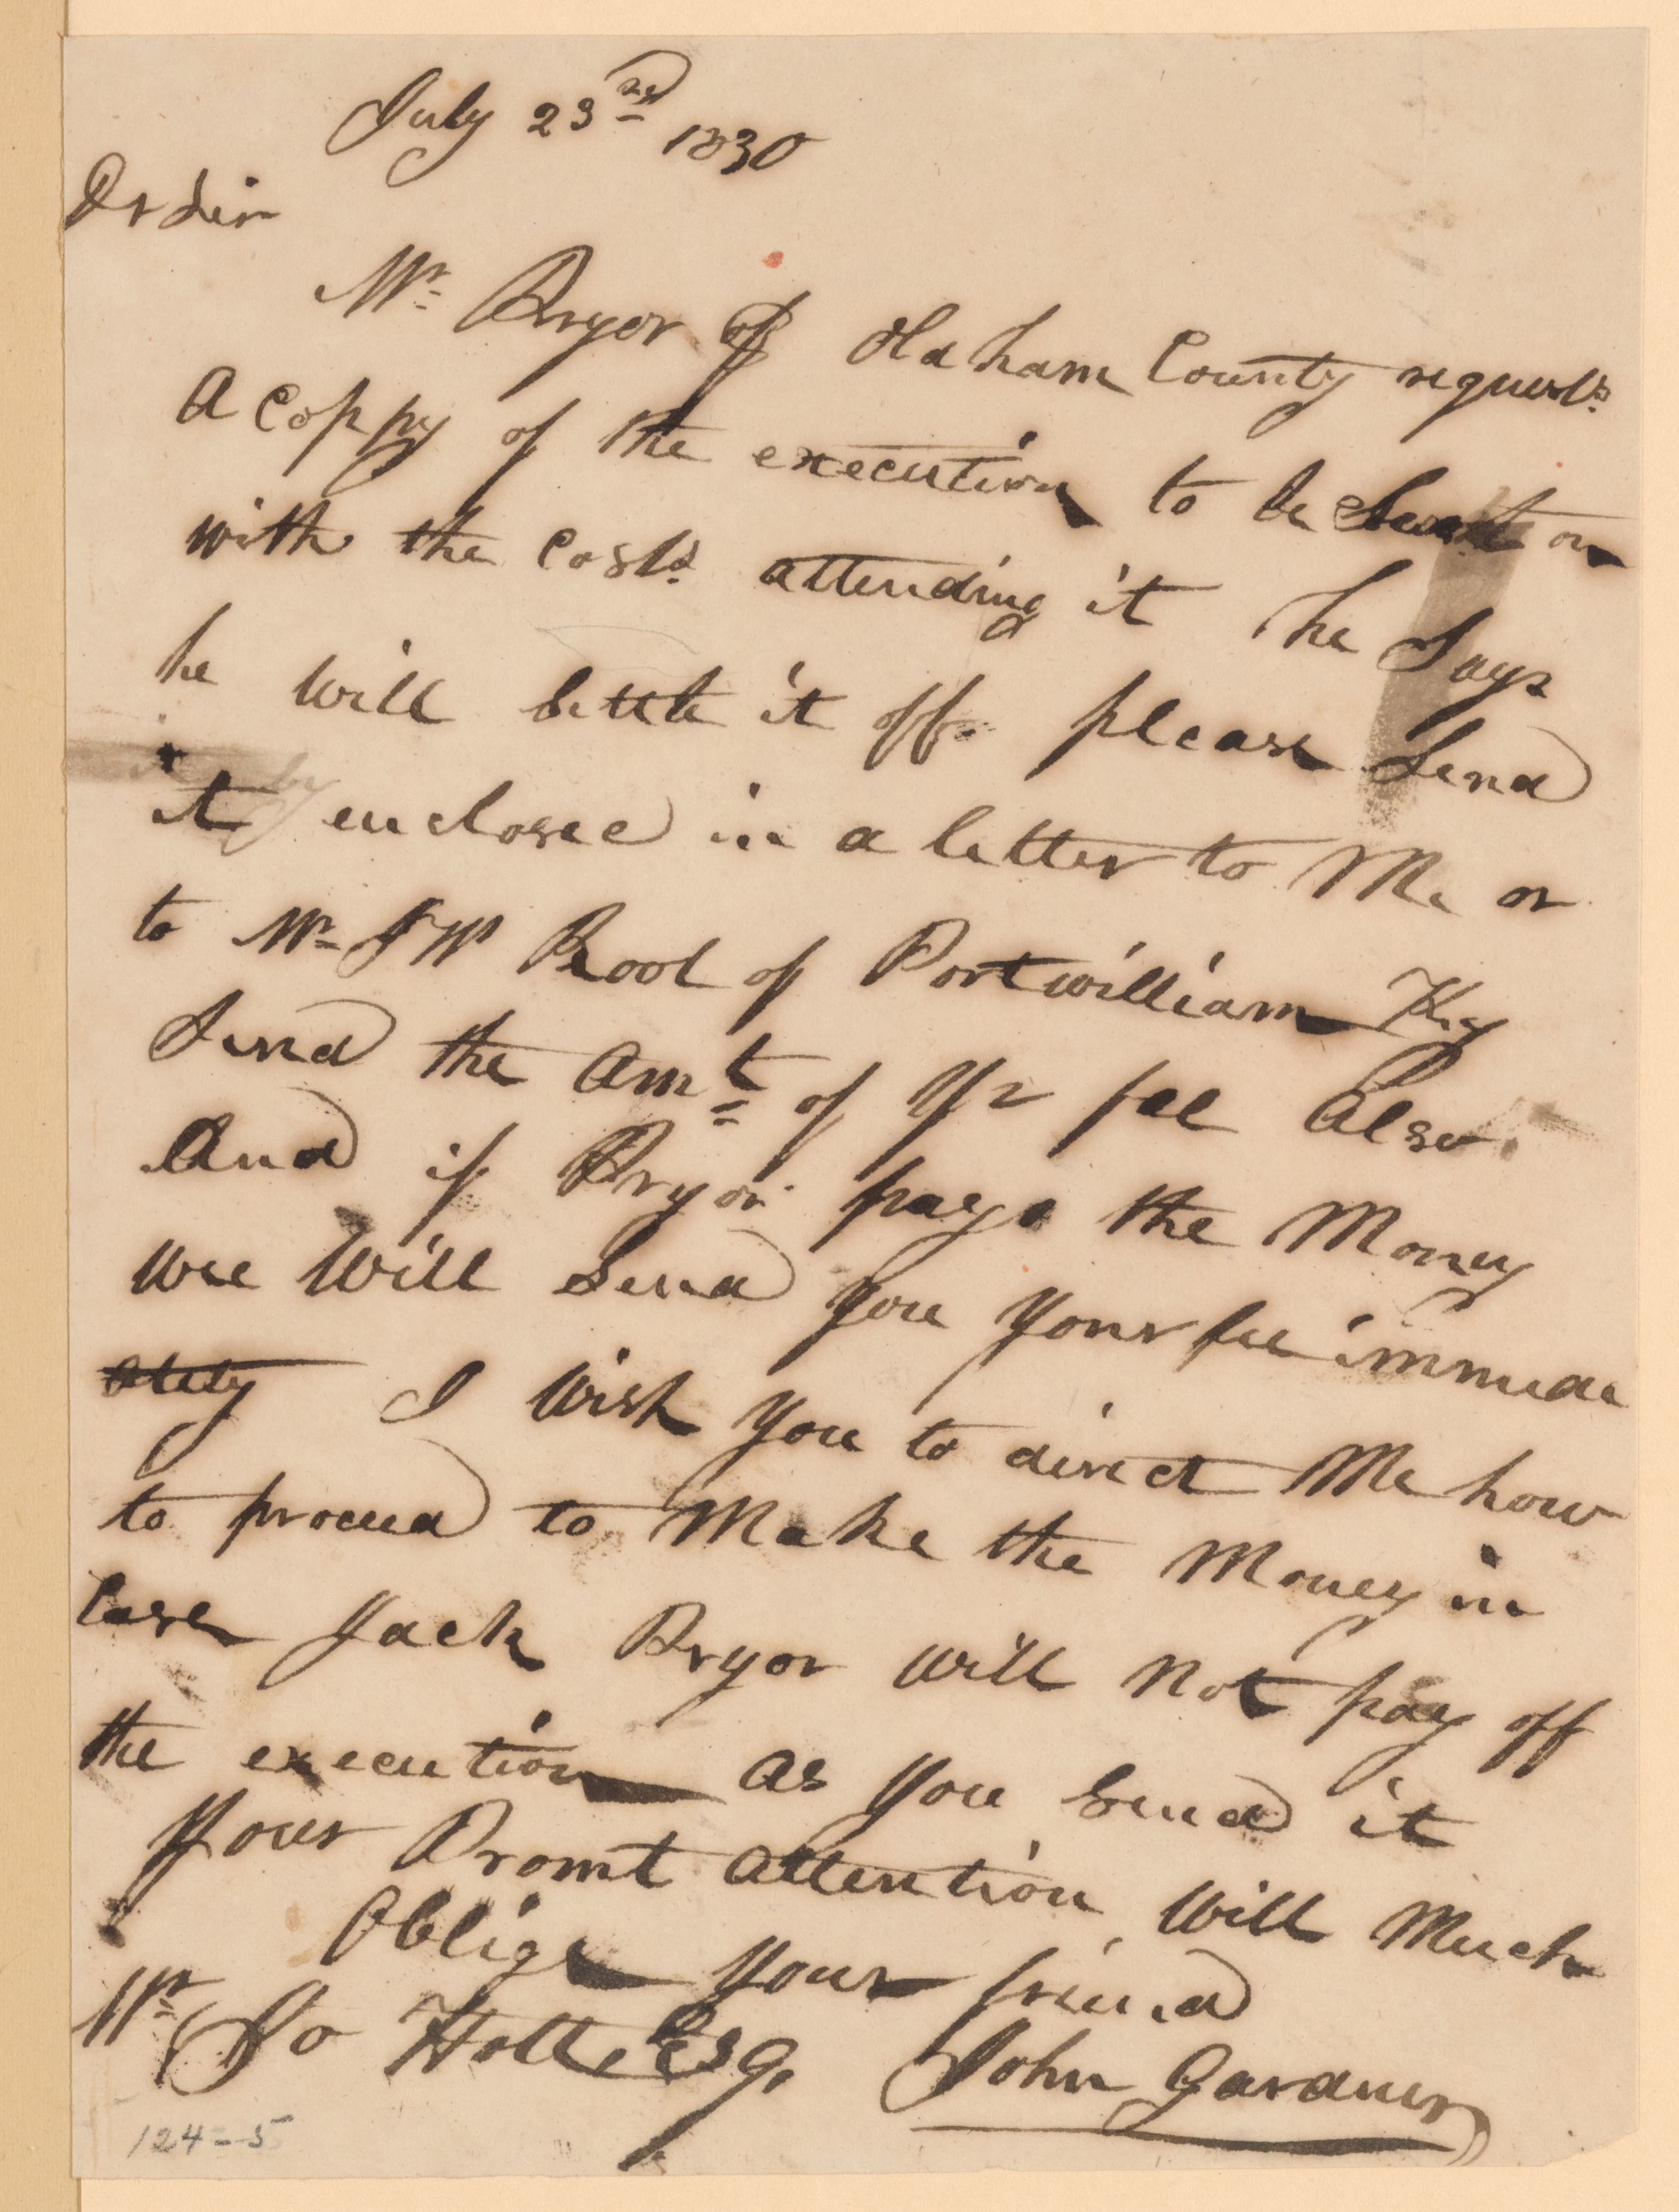 July 23rd 1830
Dr Sir
Mr Pryor of Oldham County requests
A Coppy of the execution to be Sent on
with the Costs attending it he Says
he will settle it off. please Send
it enclosed in a letter to Me or
to Mr J W Root of Portwilliam Ky
Send the Amt of Yr fee Also.
And if Pryor pays the Money
wee Will Send you Your fee immedi
ately I wish You to direct Me how
to proceed to Make the Money in
Case Jack Pryor will not pay off
the execution as you Send it
Your Promt attention will Much
Oblige Your friend
Mr Jo Holt Esq. John Gardner
124-5